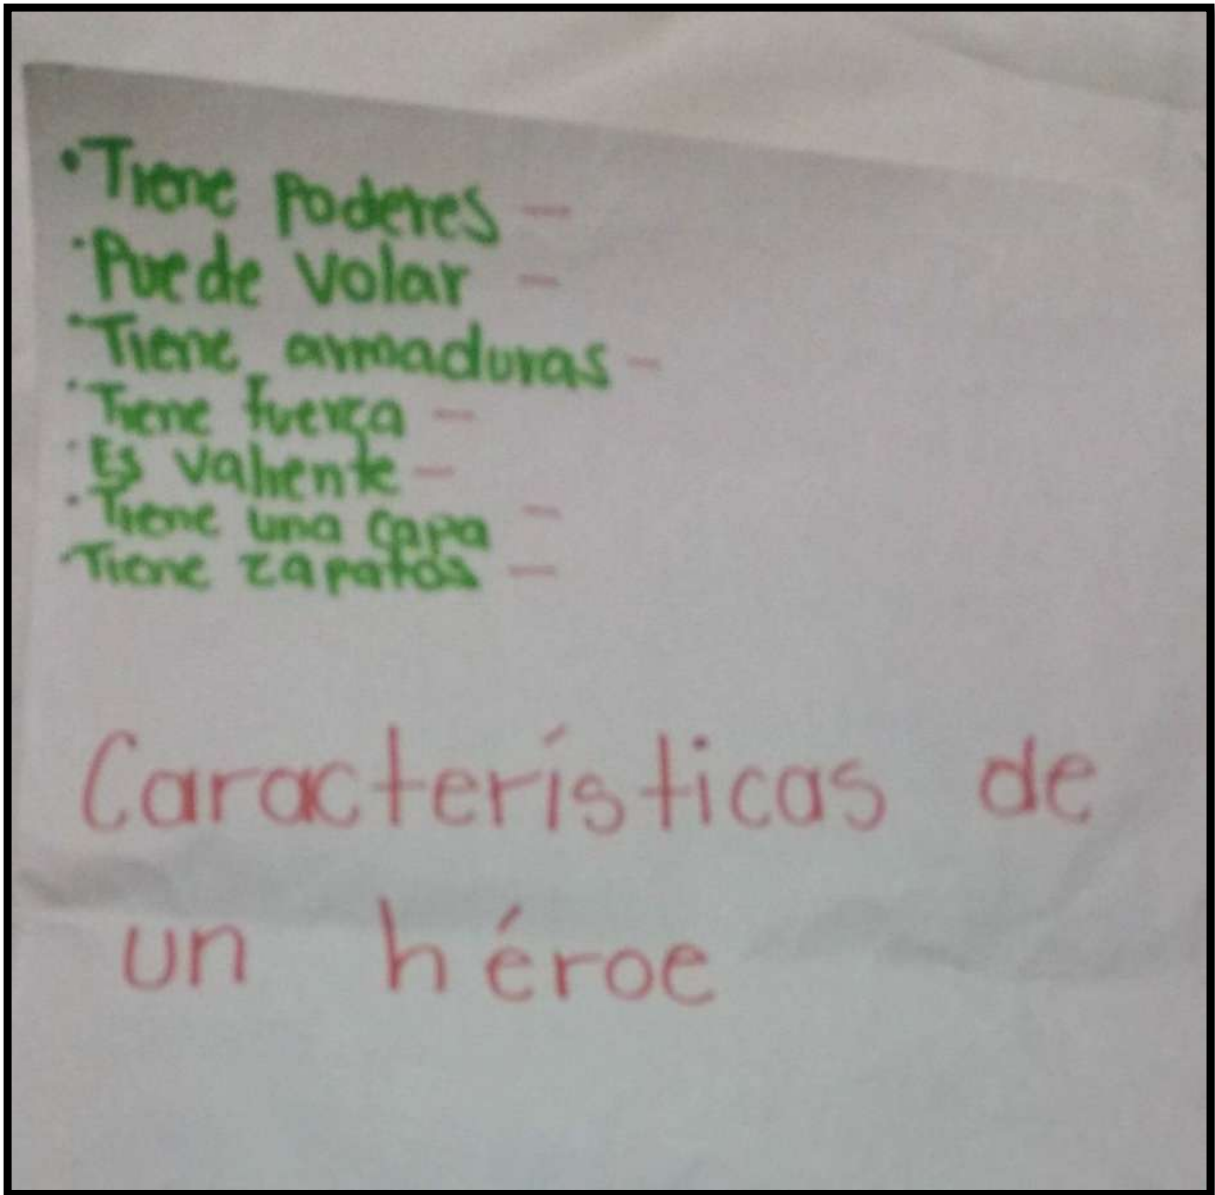 • Tiene poderes –
• Puede volar –
• Tiene armaduras –
• Tiene fuerza –
• Es valiente –
• Tiene una capa –
• Tiene zapatos –
Características de
un héroe